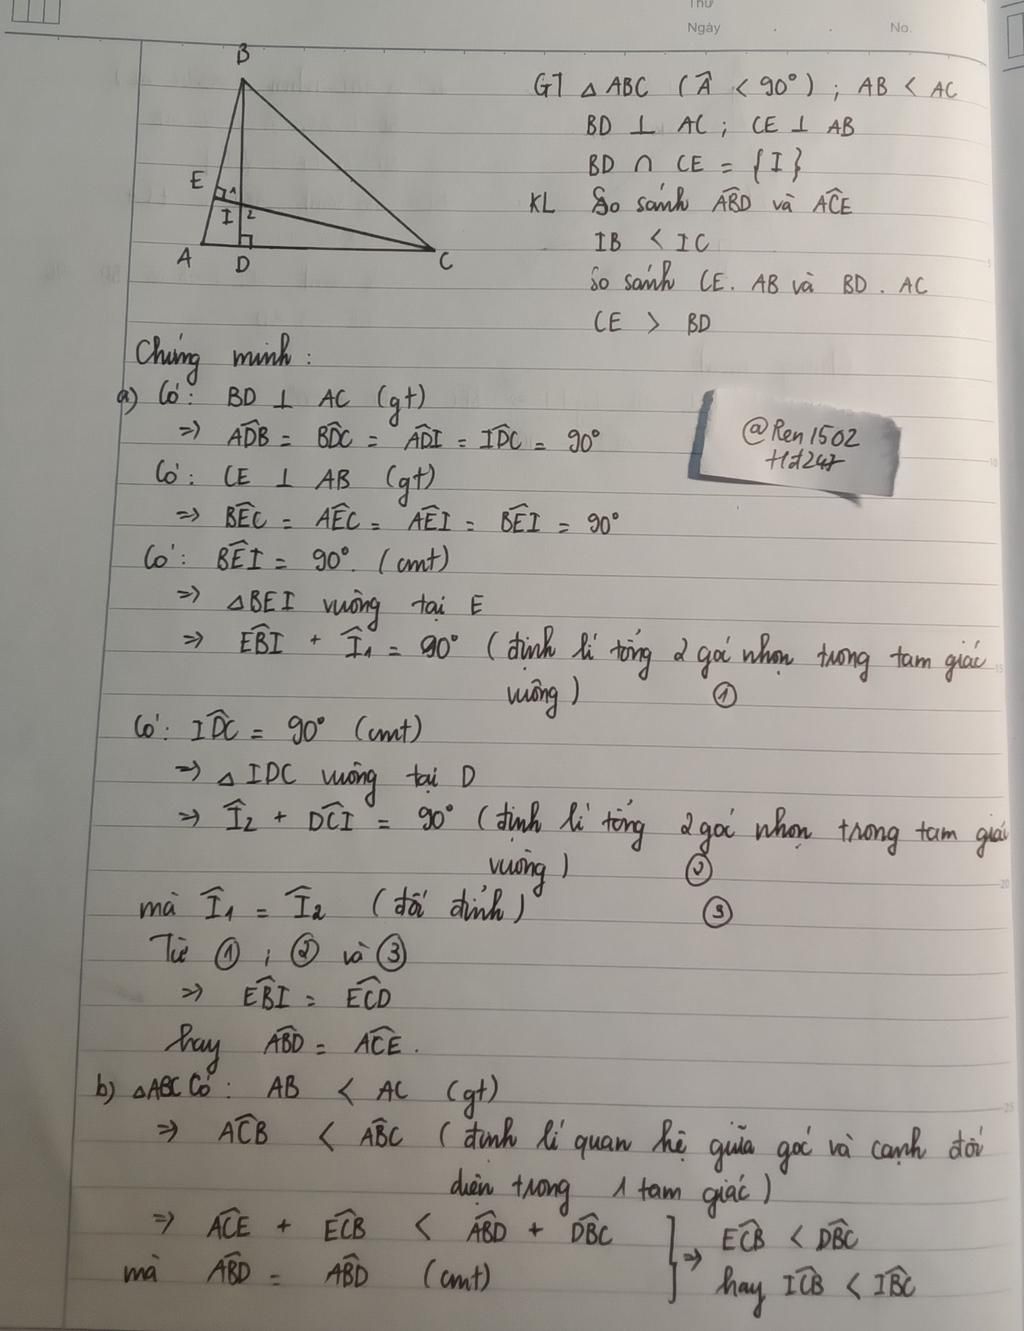 Thứ
Ngày . . No.
B
E 1
I 2
A D C
GT △ABC (Â < 90°) ; AB < AC
BD ⊥ AC ; CE ⊥ AB
BD ∩ CE = {I}
KL So sánh ABD̂ và ACÊ
IB < IC
So sánh CE . AB và BD . AC
CE > BD
Chứng minh :
a) Có : BD ⊥ AC (gt)
=> ADB̂ = BDĈ = ADÎ = IDĈ = 90°
Có : CE ⊥ AB (gt)
=> BEĈ = AEĈ = AEÎ = BEÎ = 90°
Có : BEÎ = 90°. (cmt)
=> △BEI vuông tại E
=> EBÎ + Î1 = 90° (định lí tổng 2 góc nhọn trong tam giác
vuông) ①
Có : IDĈ = 90° (cmt)
=> △IDC vuông tại D
=> Î2 + DCÎ = 90° (định lí tổng 2 góc nhọn trong tam giác
vuông) ②
mà Î1 = Î2 (đối đỉnh) ③
Từ ① ; ② và ③
=> EBÎ = ECD̂
hay ABD̂ = ACÊ .
b) △ABC Có : AB < AC (gt)
=> ACB̂ < ABĈ (định lí quan hệ giữa góc và cạnh đối
diện trong 1 tam giác)
=> ACÊ + ECB̂ < ABD̂ + DBĈ } => ECB̂ < DBĈ
mà ABD̂ = ABD̂ (cmt) hay ICB̂ < IBĈ
@Ren1502
Hd247